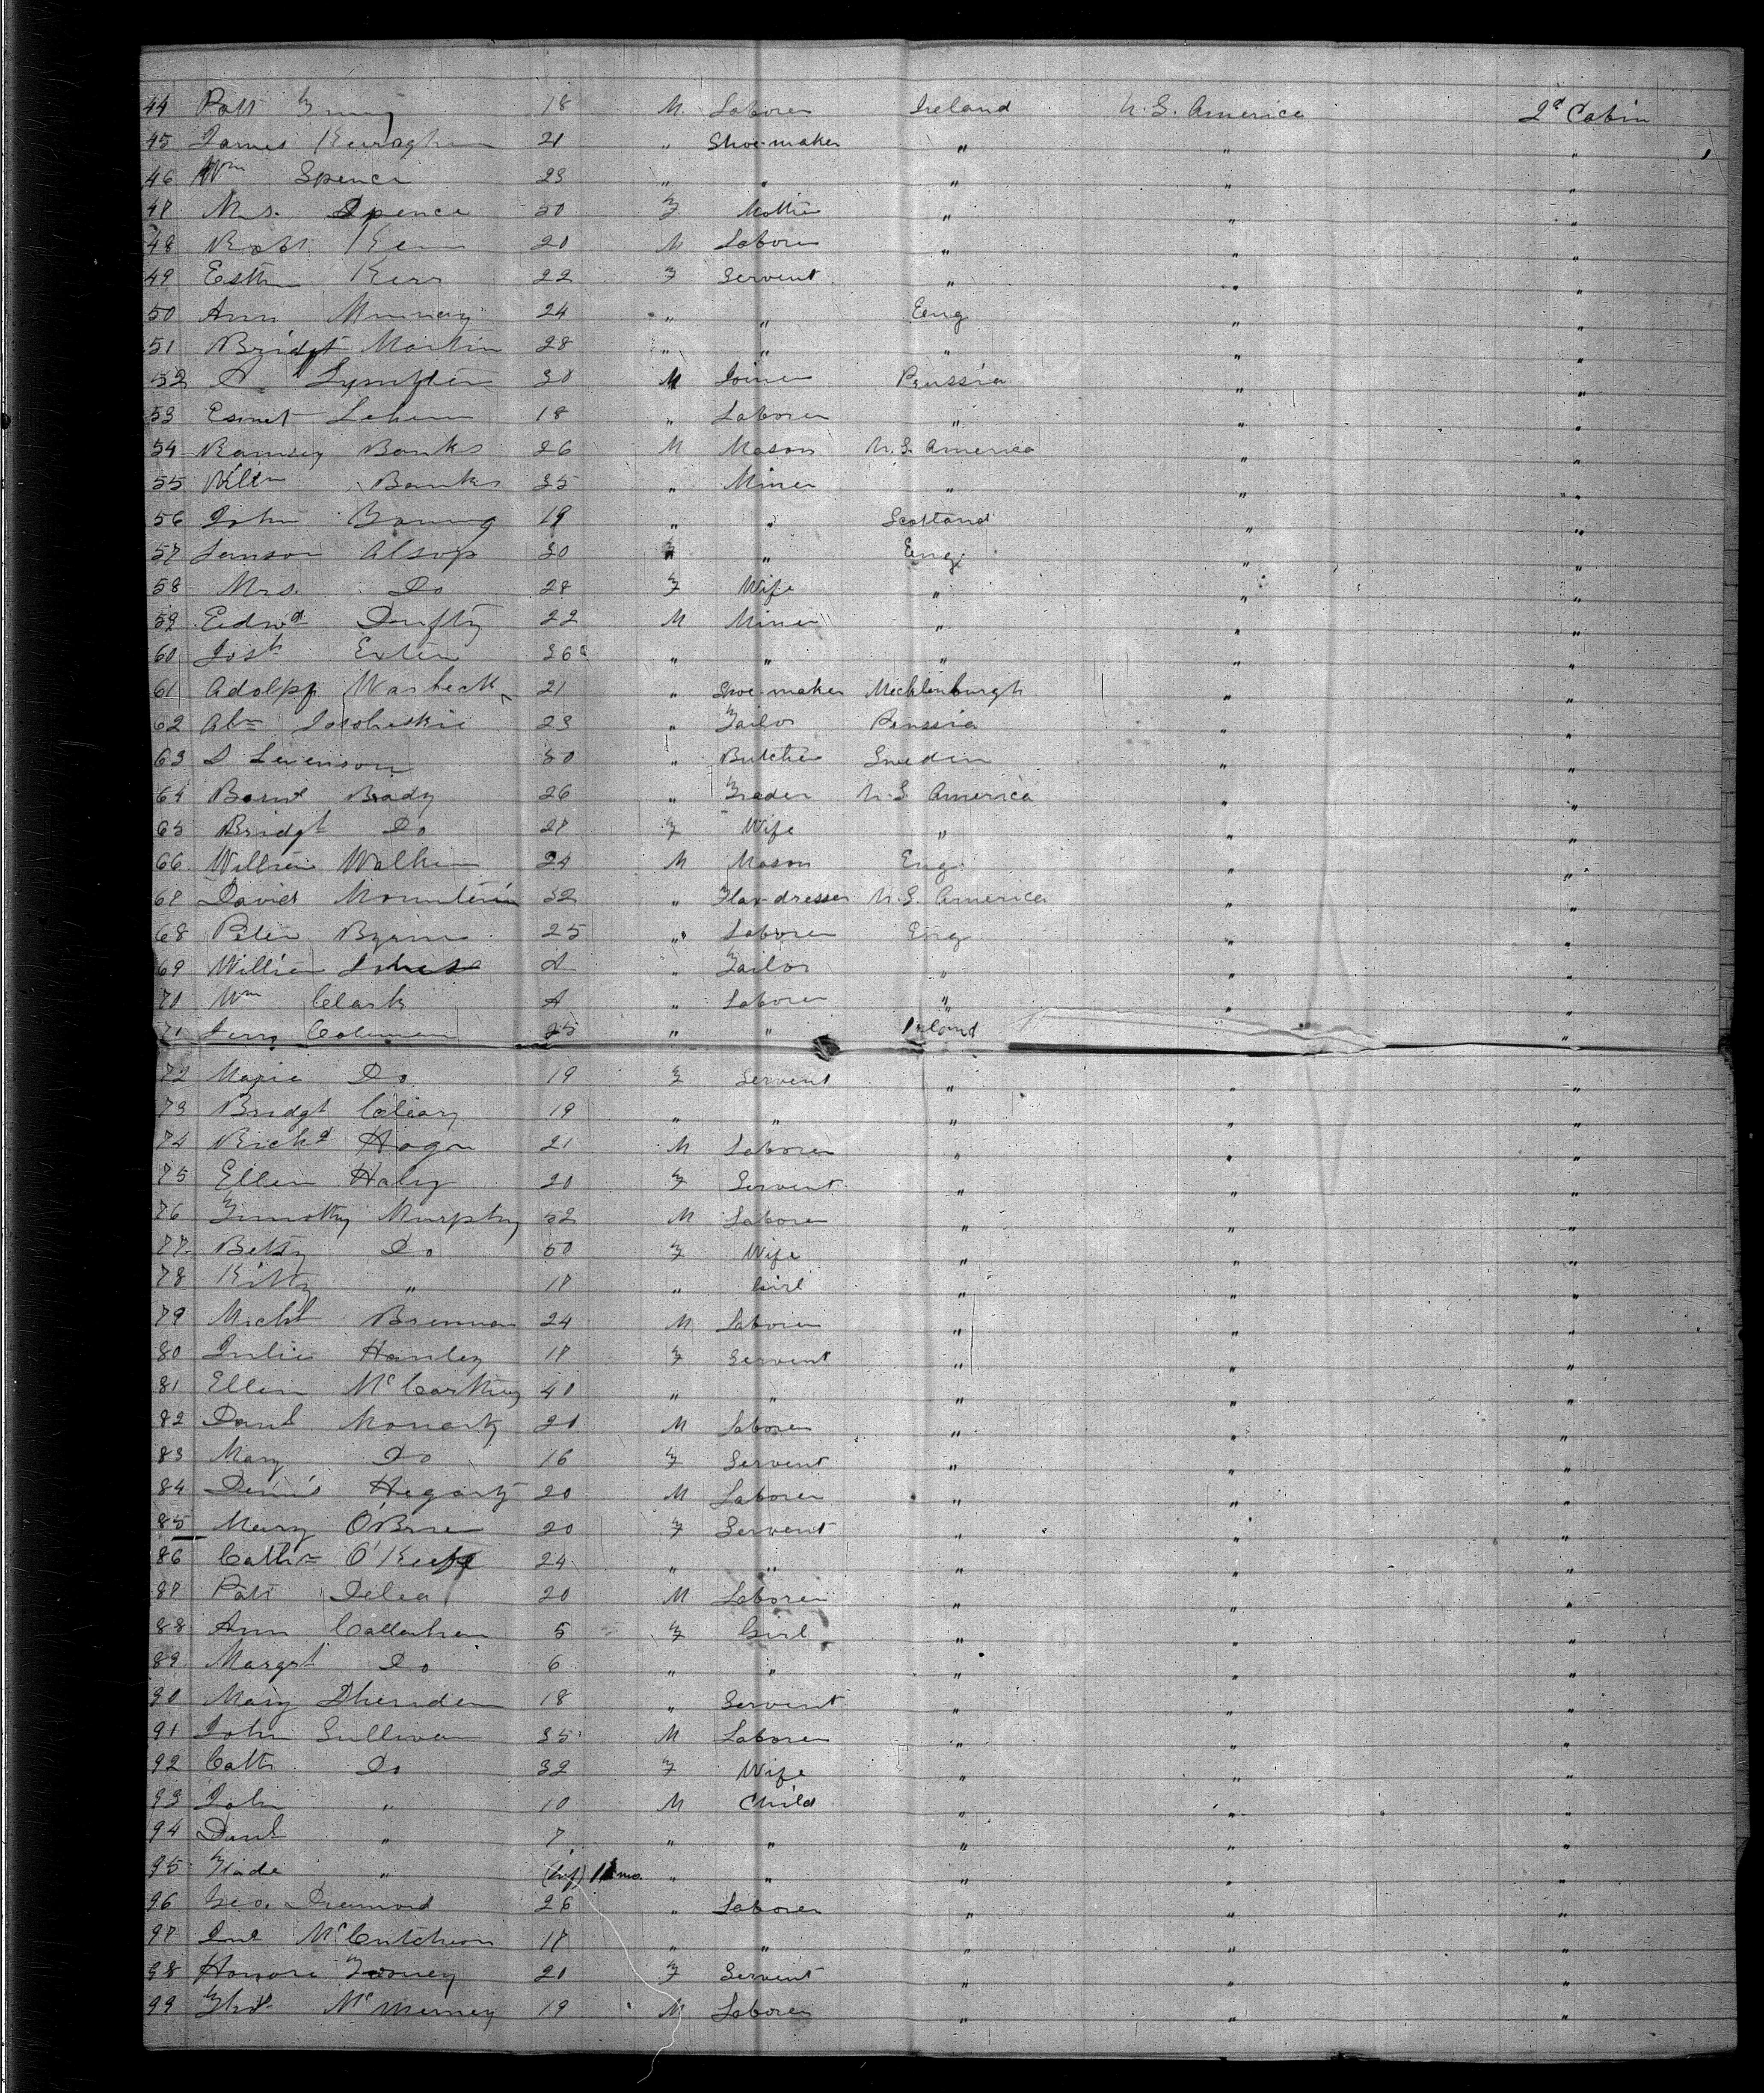 44 Patt 18 M. Laborer Ireland U.S. America 2d Cabin
45 James 21 " Shoe-maker " " "
46 Wm Spence 23 " " " " "
47 Mrs. Spence 50 F Mother " " "
48 Robt Kerr 20 M Laborer " " "
49 Esther Kerr 22 F Servent " " "
50 Ann Murray 24 " " Eng " "
51 Bridgt Martin 28 " " " " "
52 30 M Joiner Prussia " "
53 18 " Laborer " " "
54 Ramsey Banks 26 M Mason U.S. America " "
55 Banks 35 " Miner " " "
56 John 19 " " Scotland " "
57 Alsop 30 " " Eng. " "
58 Mrs. Do 28 F Wife " " "
59 Edwd Dufty 22 M Miner " " "
60 Josh 36 " " " " "
61 Adolph Warbeck 21 " Shoe-maker Mecklenburgh " "
62 Abm 23 " Tailor Prussia " "
63 S Levenson 30 " Butcher Sweden " "
64 Brady 26 " Trader U.S. America " "
65 Bridgt Do 27 F Wife " " "
66 William Walker 24 M Mason Eng. " "
67 David Mountain 32 " Flax-dresser U.S. America " "
68 Peter Byrne 25 " Laborer Eng " "
69 William A " Tailor " " "
70 Wm Clark A " Laborer " " "
71 Coleman 25 " " Ireland "
72 Maria Do 19 F Servent " " "
73 Bridgt Cleary 19 " " " " "
74 Richd Hogan 21 M Laborer " " "
75 Ellen Haly 20 F Servent " " "
76 Timothy Murphy 52 M Laborer " " "
77 Betsy Do 50 F Wife " " "
78 Kitty " 17 " Girl " " "
79 Michl Brennan 24 M Laborer " " "
80 Julia Hanley 17 F Servent " " "
81 Ellen McCarthy 40 " " " " "
82 Danl Moriarty 20 M Laborer " " "
83 Mary Do 16 F Servent " " "
84 Dennis Hegarty 20 M Laborer " " "
85 Mary O'Brien 20 F Servent " " "
86 Cathn O'Keefe 24 " " " " "
87 Patt Delea 20 M Laborer " " "
88 Ann Callaghan 5 F Girl " " "
89 Margrt Do 6 " " " " "
90 Mary 18 " Servent " " "
91 John Sullivan 35 M Laborer " " "
92 Cath Do 32 F Wife " " "
93 John " 10 M Child " " "
94 Danl " 7 " " " " "
95 " (Inf) mo. " " " " "
96 Geo. Diamond 26 " Laborer " " "
97 McCutcheon 17 " " " " "
98 Honora Toomey 20 F Servent " " "
99 Thos 19 M Laborer " " "